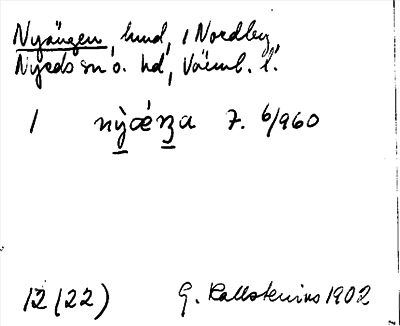 Nyängen, lund, i Nordby,
Nyeds sn o. hd, Värml. l.
1 nỳǽꞑa 7. 6/960
12 (22) G. Kallstenius 1902